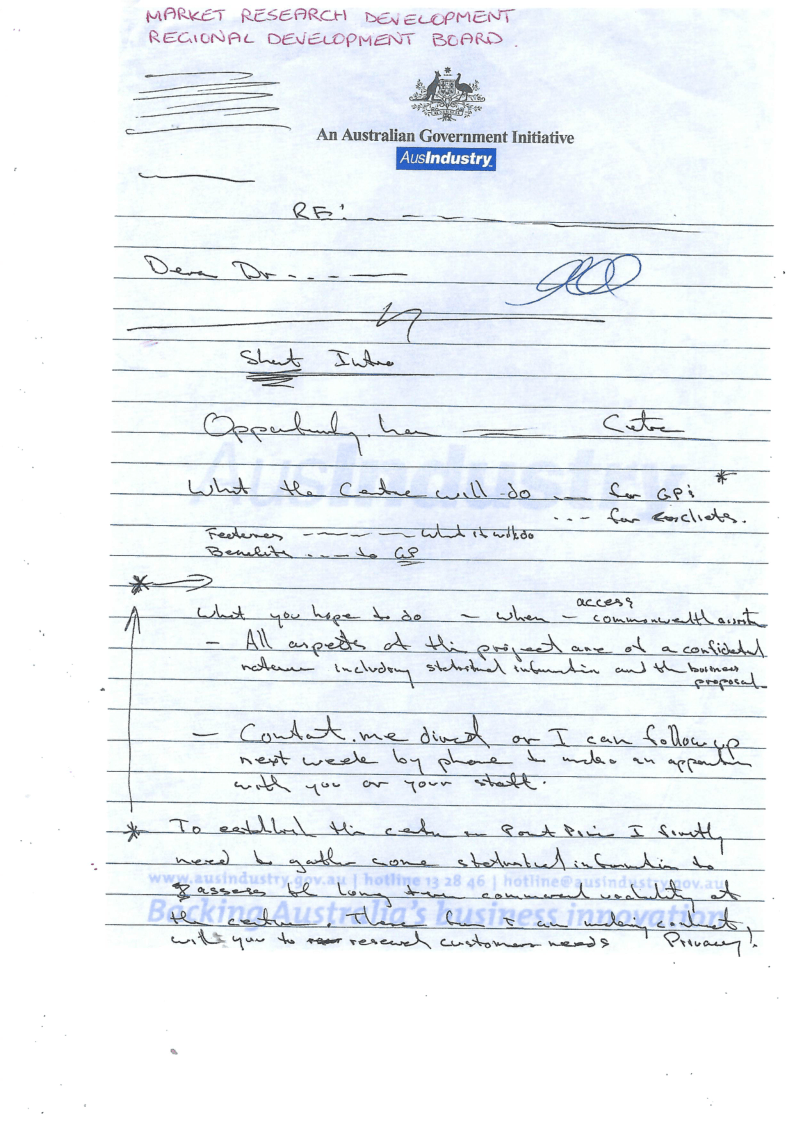 MARKET RESEARCH DEVELOPMENT
REGIONAL DEVELOPMENT BOARD.
An Australian Government Initiative
AusIndustry
RE:
Dear Dr
Short Intro
Opportunity has Centre
AusIndustry
What the Centre will do for GPs *
for clients.
Features what it will do
Benefits to GP
*
access
What you hope to do - when - commonwealth
- All aspects of this project are of a confidential
nature including statistical information and the business
proposal
- Contact me direct or I can follow up
next week by phone to make an
with you or your staff.
* To establish this centre in Port Pirie I firstly
need to gather some statistical information to
www.ausindustry.gov.au | hotline 13 28 46 | hotline@ausindustry.gov.au
assess the long term commercial viability of
Backing Australia's business innovation
the centre. There I am making contact
with you to research customers needs Privacy!